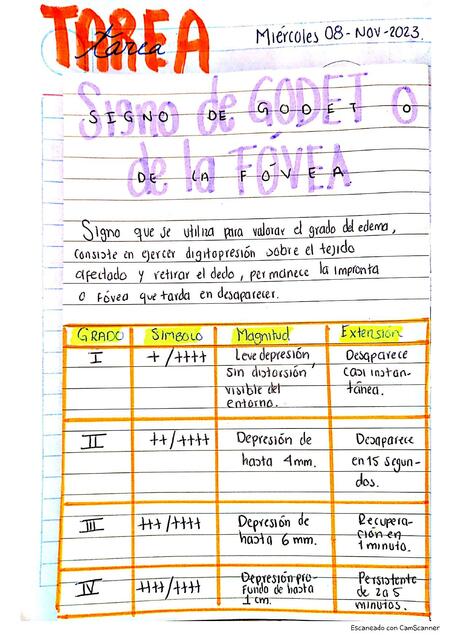 TAREA
tarea
Miércoles 08-NOV-2023.
Signo de GODET o
SIGNO DE GODET O
de la FÓVEA
DE LA FÓVEA
Signo que se utiliza para valorar el grado del edema,
consiste en ejercer digitopresión sobre el tejido
afectado y retirar el dedo, permanece la impronta
o fóvea que tarda en desaparecer.
GRADO SIMBOLO Magnitud Extensión
I +/++++ Leve depresión, Desaparece
sin distorsión, casi instan-
visible del tánea.
entorno.
II ++/++++ Depresión de Desaparece
hasta 4mm. en 15 segun-
dos.
III +++/++++ Depresión de Recupera-
hasta 6mm. ción en
1 minuto.
IV ++++/++++ Depresión pro- Persistente
fundo de hasta de 2 a 5
1 cm. minutos.
Escaneado con CamScanner